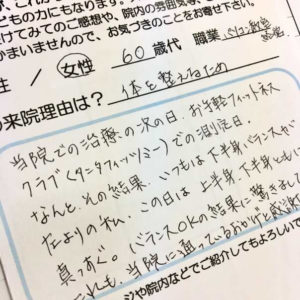 どの力にもなります。ま
けてみてのご感想や、院内の雰囲気等、
かまいませんので、お気づきのことをお寄せ下さい。
性 / 女性 60歳代 職業 パソコン教室
の来院理由は? 体を整えるため
当院での治療の次の日、お手軽フィットネス
クラブ(タニタフィッツミー)での測定日。
なんと、その結果、いつもは下半身バランスが
左よりの私、この日は上半身、下半身ともに
真っすぐ。バランスOKの結果に驚きまし
これも、当院に通っているおかげと感謝
ジや院内などでご紹介してもよろしいで